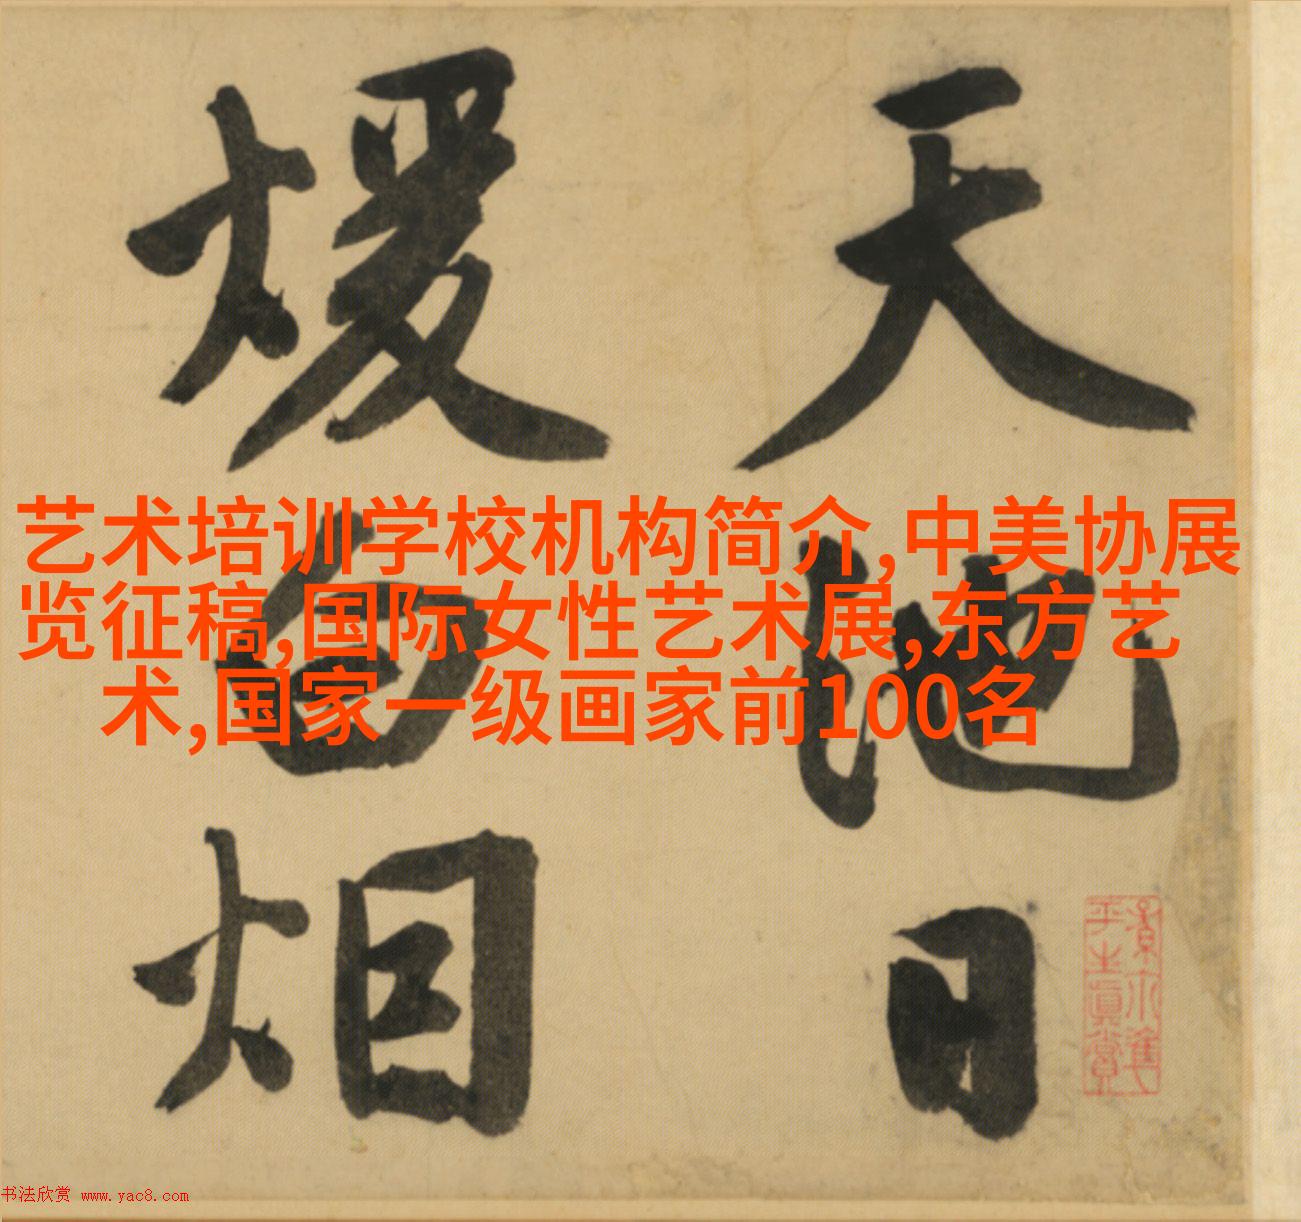 天池日
煖白烟
艺术培训学校机构简介,中美协展
览征稿,国际女性艺术展,东方艺
术,国家一级画家前100名
平生真賞
书法欣赏 www.yac8.com